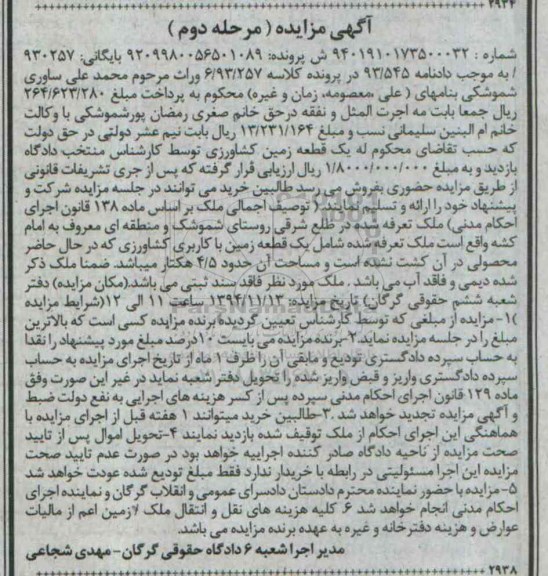 ۲۹۳۴
آگهی مزایده (مرحله دوم)
شماره : ۹۴۰۱۹۱۰۱۷۳۵۰۰۰۳۲ ش پرونده: ۹۲۰۹۹۸۰۰۵۶۵۰۱۰۸۹ بایگانی: ۹۳۰۲۵۷
/ به موجب دادنامه ۹۳/۵۴۵ در پرونده کلاسه ۶/۹۳/۲۵۷ وراث مرحوم محمد علی ساوری
شموشکی بنامهای ( علی ،معصومه، زمان و غیره) محکوم به پرداخت مبلغ ۲۶۴/۶۲۳/۲۸۰
ریال جمعا بابت مه اجرت المثل و نفقه درحق خانم صغری رمضان پورشموشکی با وکالت
خانم ام البنین سلیمانی نسب و مبلغ ۱۳/۲۳۱/۱۶۴ ریال بابت نیم عشر دولتی در حق دولت
که حسب تقاضای محکوم له یک قطعه زمین کشاورزی توسط کارشناس منتخب دادگاه
بازدید و به مبلغ ۱/۸۰۰۰/۰۰۰/۰۰۰ ریال ارزیابی قرار گرفته که پس از جری تشریفات قانونی
از طریق مزایده حضوری بفروش می رسد طالبین خرید می توانند در جلسه مزایده شرکت و
پیشنهاد خود را ارائه و تسلیم نمایند.( توصیف اجمالی ملک بر اساس ماده ۱۳۸ قانون اجرای
احکام مدنی) ملک تعرفه شده در ضلع شرقی روستای شموشک و منطقه ای معروف به امام
کشه واقع است ملک تعرفه شده شامل یک قطعه زمین با کاربری کشاورزی که در حال حاضر
محصولی در آن کشت نشده است و مساحت آن حدود ۴/۵ هکتار میباشد. ضمنا ملک ذکر
شده دیمی و فاقد آب می باشد . ملک مورد نظر فاقد سند ثبتی می باشد.(مکان مزایده) دفتر
شعبه ششم حقوقی گرگان) تاریخ مزایده: ۱۳۹۴/۱۱/۱۳ ساعت ۱۱ الی ۱۲(شرایط مزایده
)۱-مزایده از مبلغی که توسط کارشناس تعیین گردیده/برنده مزایده کسی است که بالاترین
مبلغ را در جلسه مزایده نماید.۲-برنده مزایده می بایست ۱۰درصد مبلغ مورد پیشنهاد را نقدا
به حساب سپرده دادگستری تودیع و مابقی آن را ظرف ۱ ماه از تاریخ اجرای مزایده به حساب
سپرده دادگستری واریز و قبض واریز شده را تحویل دفتر شعبه نماید در غیر این صورت وفق
ماده ۱۲۹ قانون اجرای احکام مدنی سپرده پس از کسر هزینه های اجرایی به نفع دولت ضبط
و آگهی مزایده تجدید خواهد شد .۳-طالبین خرید میتوانند ۱ هفته قبل از اجرای مزایده با
هماهنگی این اجرای احکام از ملک توقیف شده بازدید نمایند ۴-تحویل اموال پس از تایید
صحت مزایده از ناحیه دادگاه صادر کننده اجراییه خواهد بود در صورت عدم تایید صحت
مزایده این اجرا مسئولیتی در رابطه با خریدار ندارد فقط مبلغ تودیع شده عودت خواهد شد
۵-مزایده با حضور نماینده محترم دادستان دادسرای عمومی و انقلاب گرگان و نماینده اجرای
احکام مدنی انجام خواهد شد ۶. کلیه هزینه های نقل و انتقال ملک /زمین اعم از مالیات
عوارض و هزینه دفترخانه و غیره به عهده برنده مزایده می باشد.
مدیر اجرا شعبه ۶ دادگاه حقوقی گرگان- مهدی شجاعی
۲۹۳۸